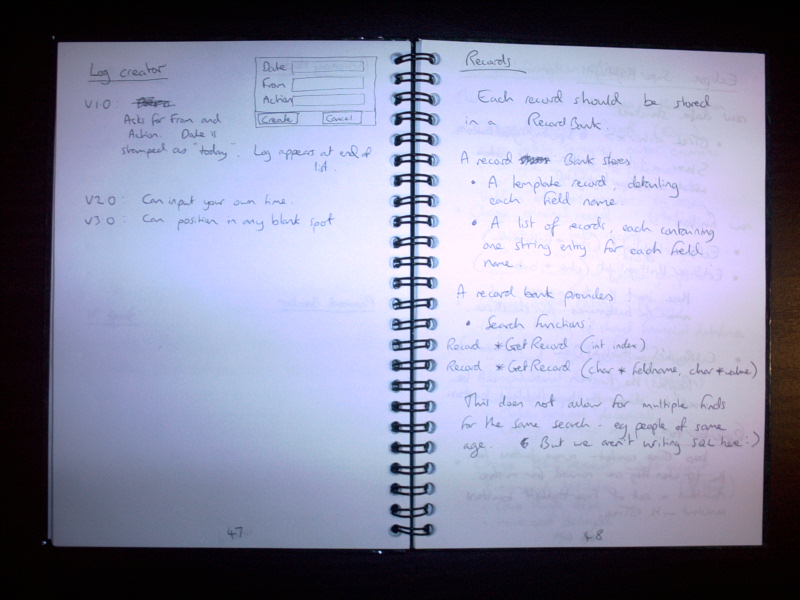 Log creator
Date
From
Action
Create Cancel
V1.0:
Asks for From and
Action. Date is
stamped as "today". Log appears at end of
list.
V2.0: Can input your own time.
V3.0: Can position in any blank spot
47
Records
Each record should be stored
in a RecordBank.
A record Bank stores
• A template record, detailing
each field name.
• A list of records, each containing
one string entry for each field
name.
A record bank provides
• Search functions:
Record *GetRecord (int index)
Record *GetRecord (char * fieldname, char *value)
This does not allow for multiple finds
for the same search - eg people of same
age. But we aren't writing SQL here :)
48